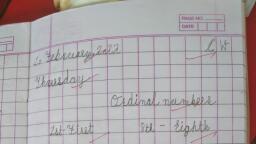 PAGE NO.
DATE
February, 2023
C. W
Thursday
Ordinal numbers
1st - First 8th - Eighth